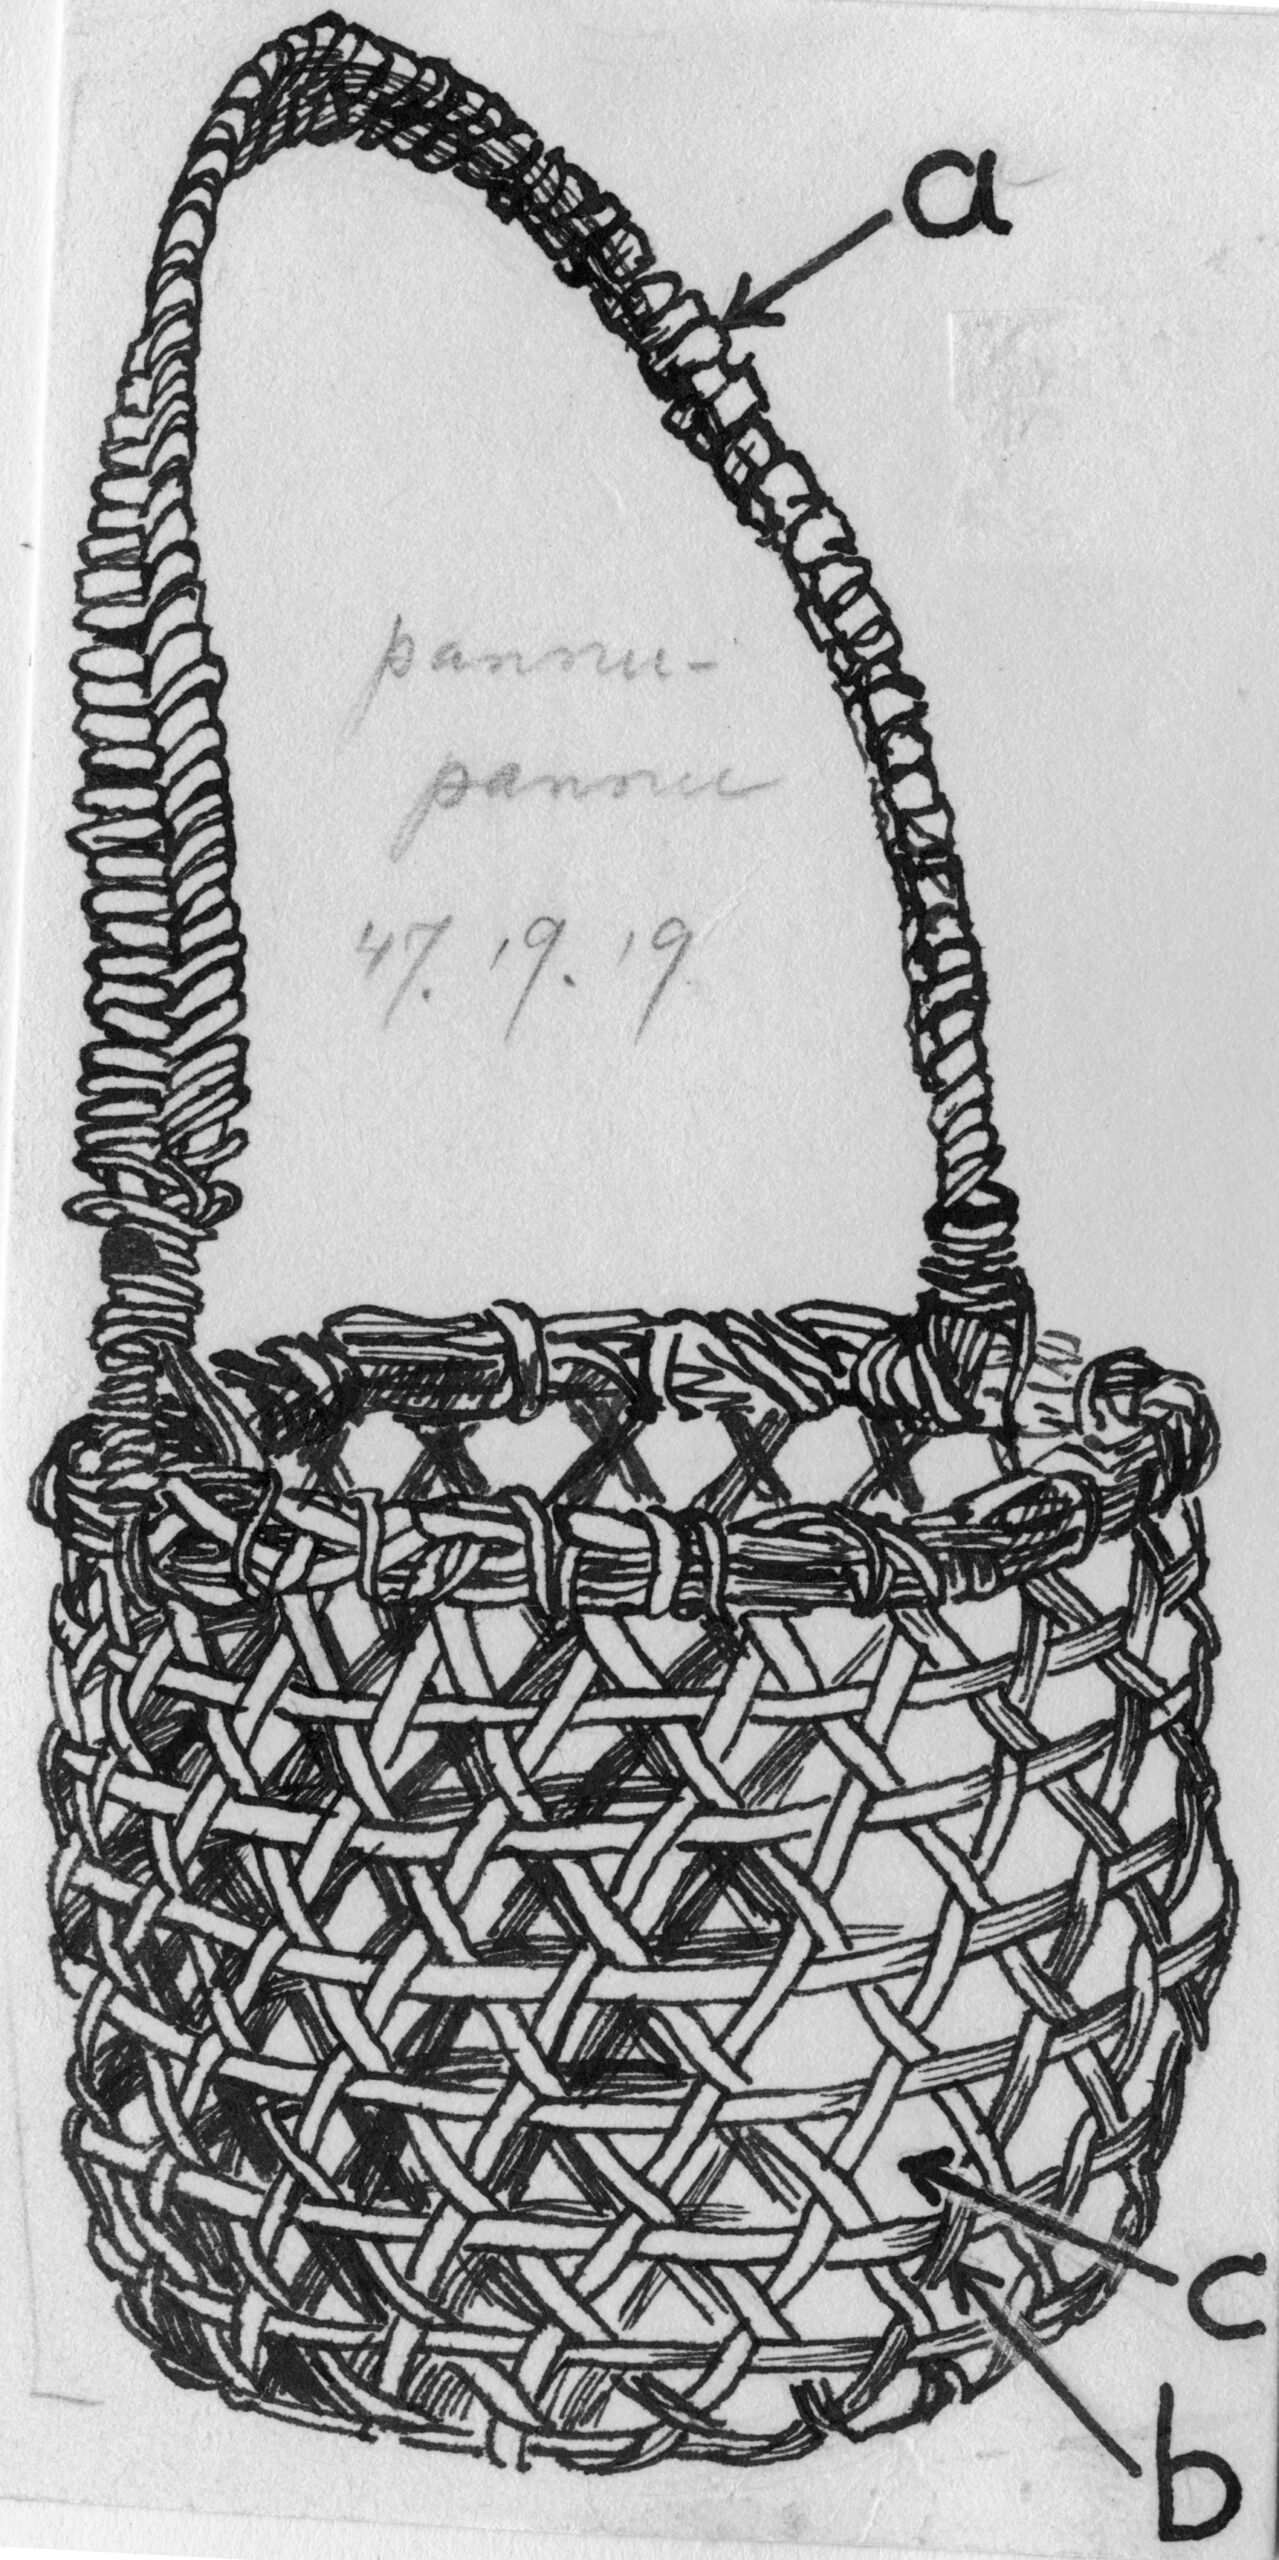 a
pannu-
pannu
47. 19. 19
c
b